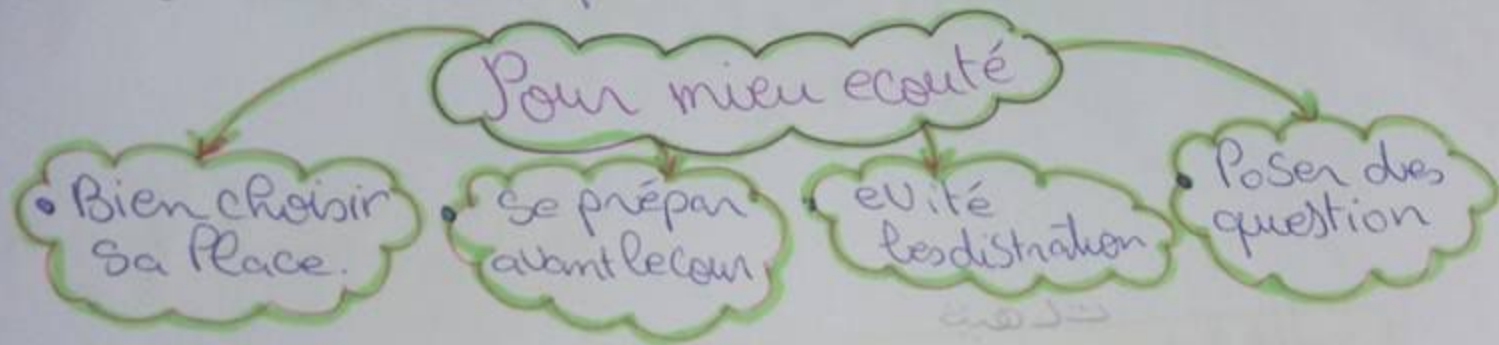 Pour mieu ecouté
• Bien choisir
sa Place.
• Se prépar
avant le cour
• evité
les distration
• Poser des
question